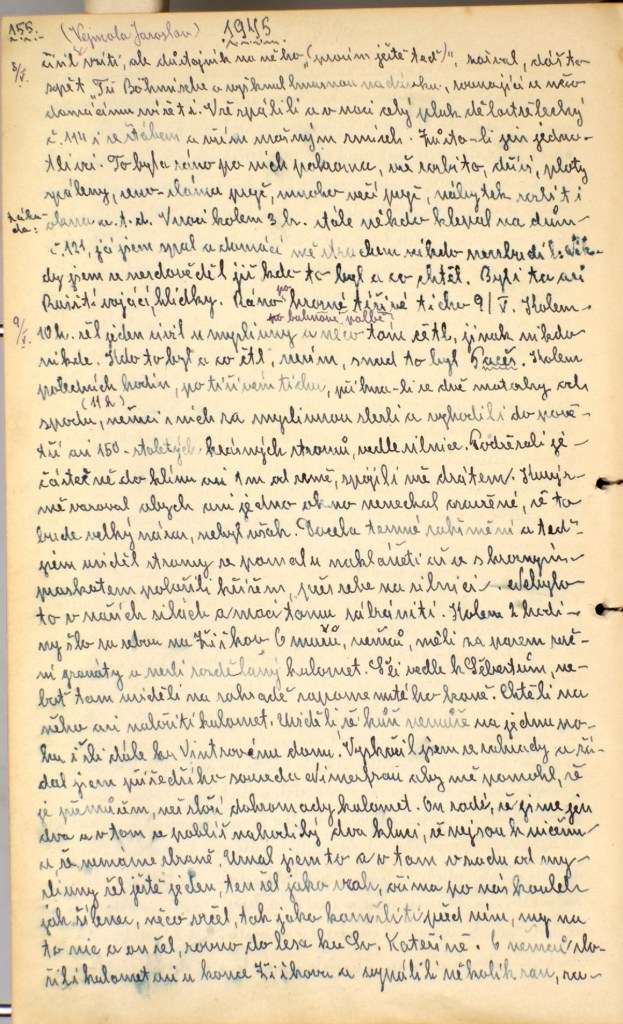 155. (Vejmola Jaroslav) 1945
8/V. vrátit, ale důstojník na něho „(prosím ještě teď)“, zařval, dát to
zpět „Tů Böhmische a vyřknul hnusnou nadávku, rovnající se něco
domácímu zvířeti. Vše spálili a v noci celý pluk dělostřelecký
č. 114 i se štábem a vším možným zmizeli. Zůstali jen jedno-
tlivci. To byla ráno po nich pohroma, vše rozbito, dříví, ploty
spáleny, seno-sláma pryč, mnoho věcí pryč, nábytek rozbit i
okna a. t. d. V noci kolem 3 h. stále někdo klepal na dům
č. 121, já jsem spal a domácí mě strachem nikdo nevzbudil. Nik-
dy jsem se nedověděl již kdo to byl a co chtěl. Byli to asi
Ruští vojáci, hlídky. Ráno po hrozné tíživé ticho 9/V. Kolem
po bubnové palbě!
9/V. 10 h. šel jeden civil u myslivny a něco tam četl, jinak nikdo
nikde. Kdo to byl a co četl, nevím, snad to byl Paceš. Kolem
poledních hodin, po tíživém tichu, přihnali se dvě motorky od
spodu, (11 h) němci s nich za myslivnou slezli a vyhodili do pově-
tří asi 150-staletých krásných stromů, vedle silnice. Podřezali je
částečně do klínu asi 1 m od země, spojili mě drátem. Hajný
mě varoval abych ani jedno okno nenechal zavřené, že to
bude velký náraz, nebyl však. Docela temné zahřmění a teď
jsem viděl stromy se pomalu nakláněti až se s hrozným
praskotem položili křížem, přes sebe na silnici. Nebylo
to v našich silách a moci tomu zabrániti. Kolem 2 hodi-
ny šlo za sebou na Žižkov 6 mužů, němců, měli za pasem ruč-
ní granáty a nesli rozdělaný kulomet. Šli vedle k Šébertům, ne-
boť tam viděli na zahradě zapomenutého koně. Chtěli na
něho asi naložiti kulomet. Viděli, že kůň nemůže na jednu no-
hu i šli dále ku Vintrovému domu. Vyskočil jsem ze zahrady a žá-
dal jsem příšedšího souseda aby mě pomohl, že
je přemůžem, než složí dohromady kulomet. On zase, že jsme jen
dva a v tom se poblíž nahodili dva kluci, že nejsou k ničemu
a že nemáme zbraně. Uznal jsem to a v tom vzadu od my-
slivny šel ještě jeden, ten šel jako vrah, očima po nás koulel
jak šílenec, něco vrčel, tak jako kamžiti před ním, my na
to nic a on šel, rovno do lesa ku Sv. Kateřině. 6 němců slo-
žili kulomet asi u konce Žižkova a vypálili několik ran, za-